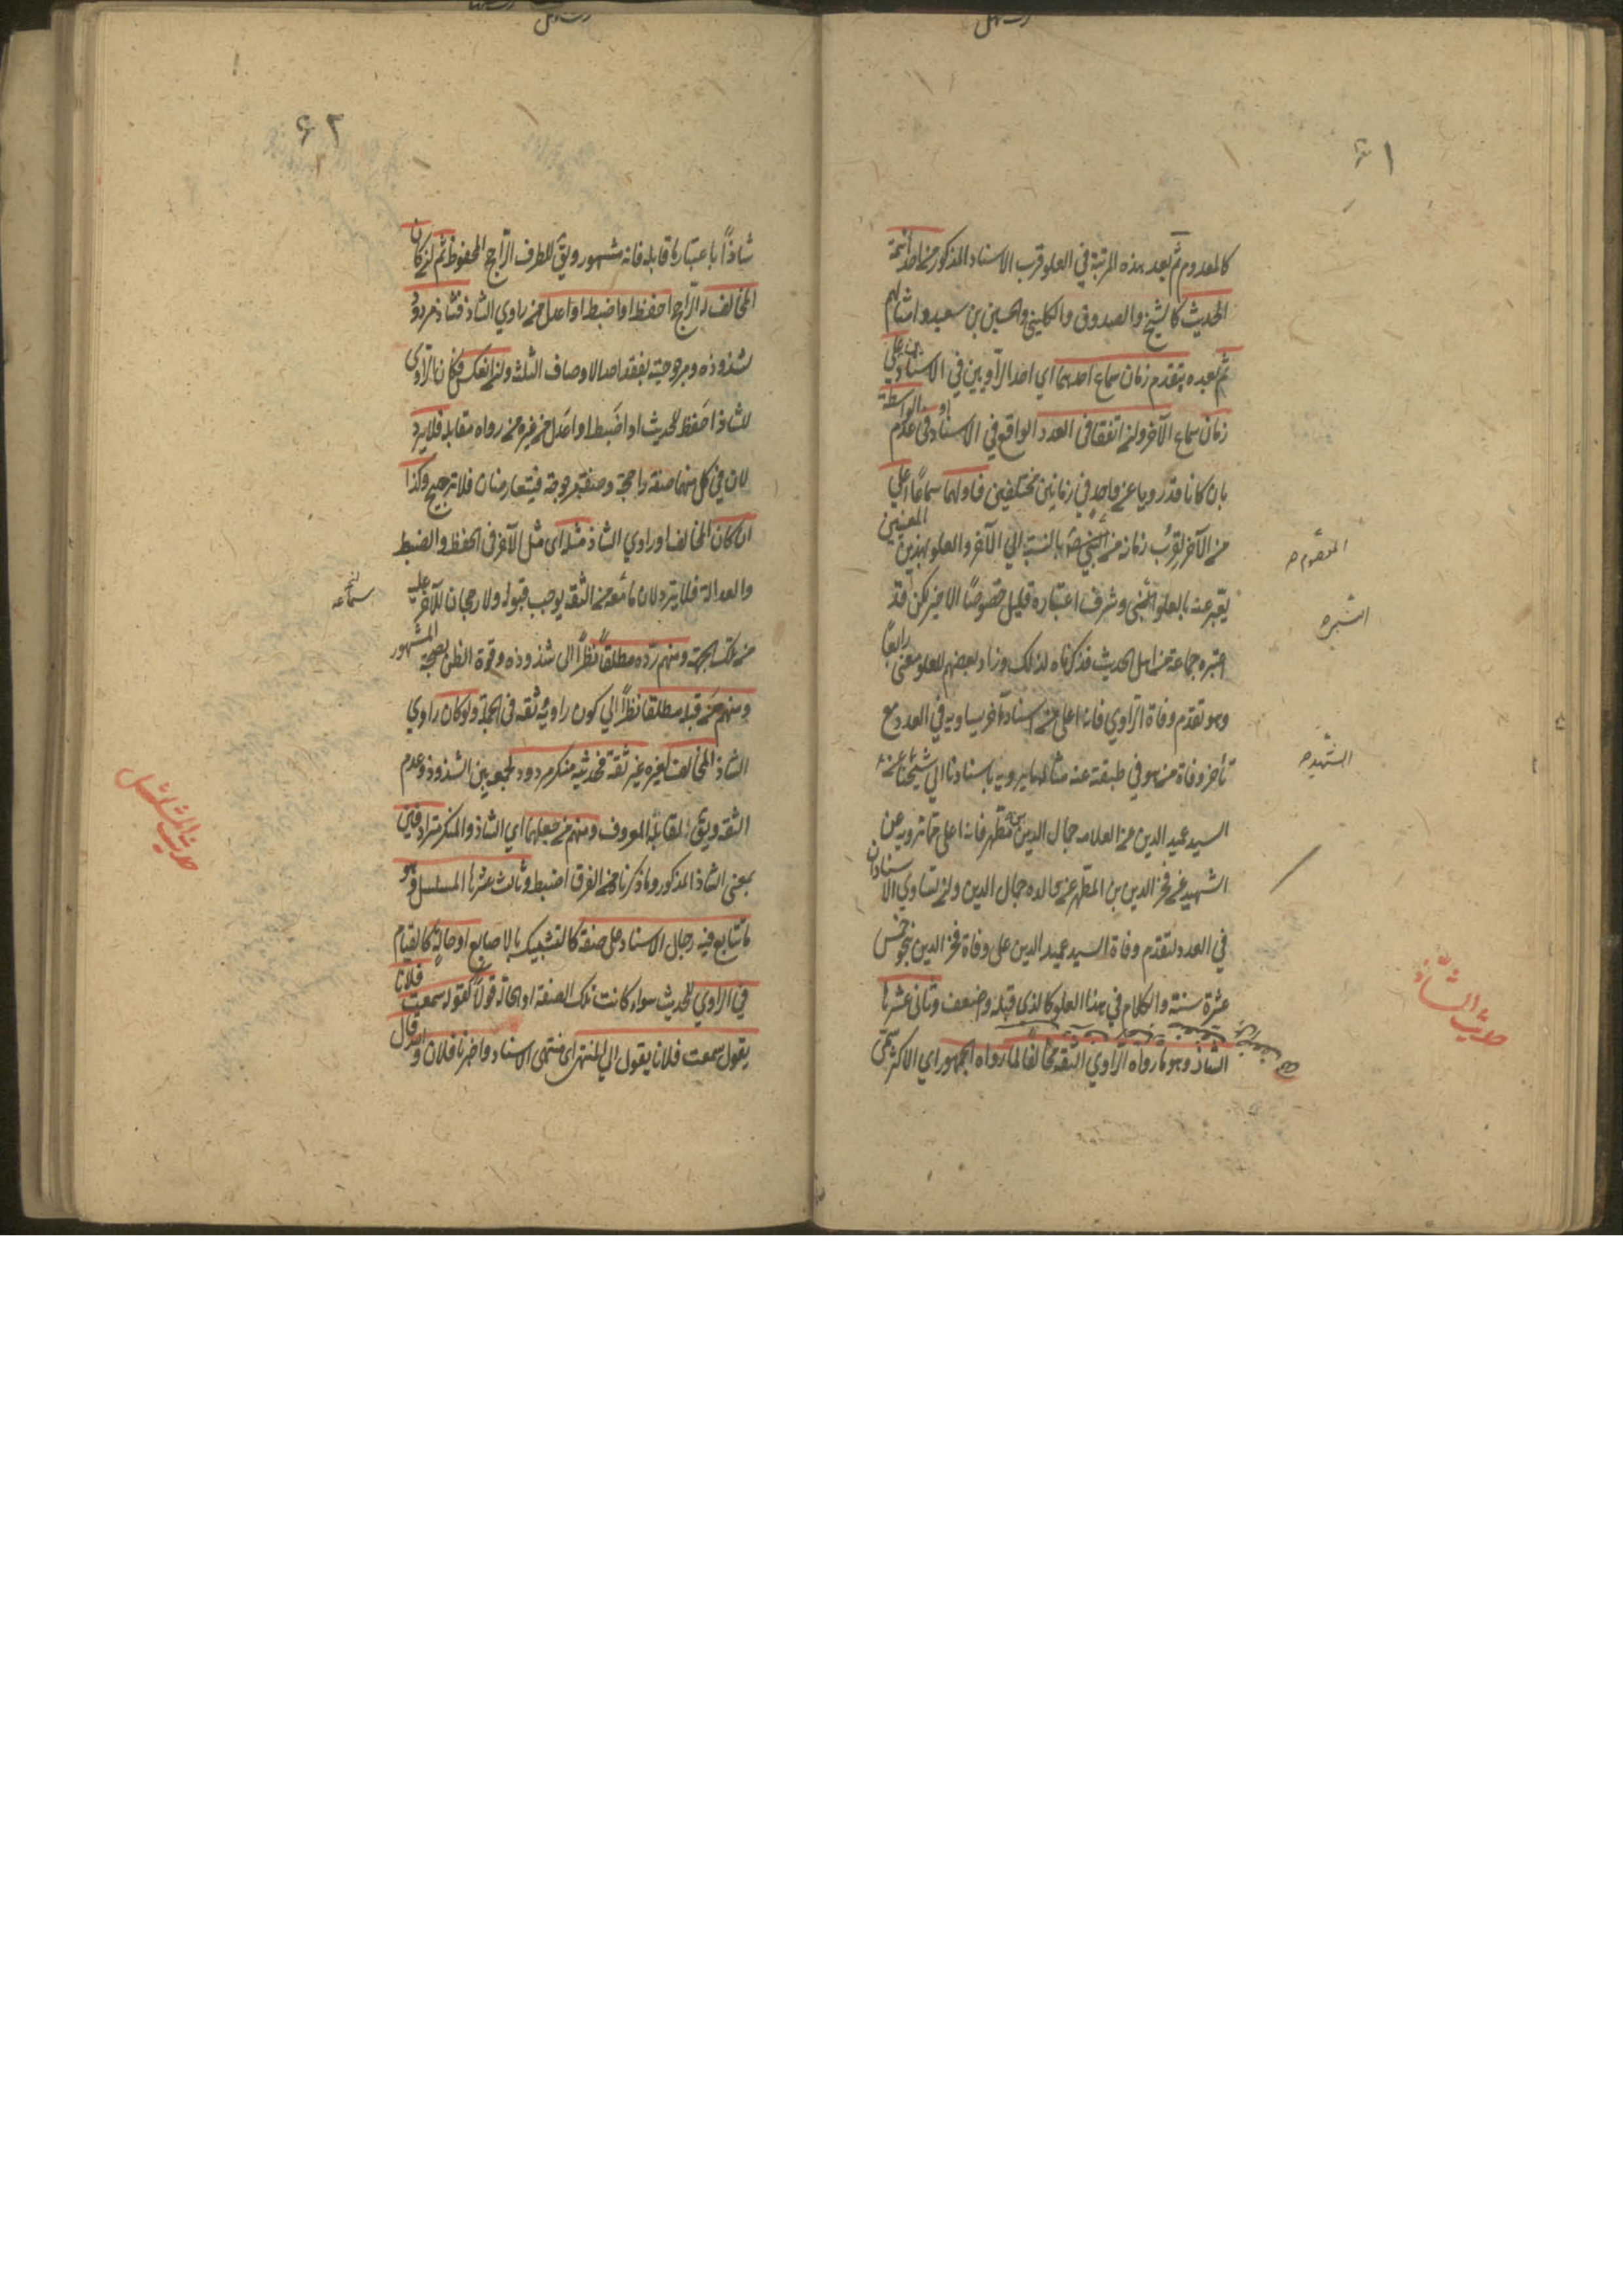 ۶۱
كالمعدوم ثم بعد هذه المرتبة في العلو قرب الاسناد المذكور من احد ائمة
الحديث كالشيخ والصدوق والكليني والحسين بن سعيد وامثالهم
ثم بعده بتقدم زمان سماع احدهما اي احد الراويين في الاسنادين على
زمان سماع الآخر وان اتفقا في العدد الواقع في الاسناد او في عدم الواسطة
بان كانا قد رويا عن واحد في زمانين مختلفين فاولهما سماعًا اعلى
من الآخر لقرب زمانه من بالنسبة الى الآخر والعلو بهذين المعنيين
يعبر عنه بالعلو المعنوي وشرف اعتباره قليل خصوصًا الاخير لكن قد
اعتبره جماعة من اهل الحديث فذكرناه لذلك وزاد بعضهم للعلو معنى رابعًا
وهو تقدم وفاة الراوي فانه اعلى من اسناد آخر يساويه في العدد مع
تأخر وفاة من هو في طبقته عنه مثاله ما يرويه باسنادنا الى شيخنا عن
السيد عميد الدين عن العلامة جمال الدين بن مطهر فانه اعلى مما نرويه عن
الشهيد عن فخر الدين بن المطهر عن والده جمال الدين وان تساوى الاسنادان
في العدد لتقدم وفاة السيد عميد الدين على وفاة فخر الدين بنحو خمس
عشرة سنة والكلام في هذا العلو كالذي قبله واضعف وثاني عشرها
الشاذ وهو ما رواه الراوي الثقة مخالفا لما رواه الجمهور اي الاكثر سمى
المعصوم
الشهيد
حديث الشاذ
۶۲
شاذًا باعتبار ما قابله فانه مشهور ويق للطرف الراجح المحفوظ ثم ان كان
المخالف له الراجح احفظ او اضبط او اعدل من راوي الشاذ فشاذ مردود
لشذوذه ومرجوحيته لفقد احد الاوصاف الثلثة وان انعكس فكان الراوي
للشاذ احفظ للحديث او اضبط او اعدل من غيره من رواة مقابله فلا يرد
لان في كل منهما صفة راجحة وصفة مرجوحة فيتعارضان فلا ترجيح وكذا
ان كان المخالف او راوي الشاذ مثله اي مثل الآخر في الحفظ والضبط
والعدالة فلا يرد لان ما معه من الثقة يوجب قبوله ولا رجحان للآخر عليه
من تلك الجهة ومنهم رده مطلقًا نظرًا الى شذوذه وقوة الظن بصحة المشهور
ومنهم من قبله مطلقا نظرًا الى كون راويه ثقة في الجملة ولو كان راوي
الشاذ المخالف لغيره غير ثقة فحديثه منكر مردود لجمعه بين الشذوذ وعدم
الثقة ويق لمقابله المعروف ومنهم من جعلهما اي الشاذ والمنكر مترادفين
بمعنى الشاذ المذكور وما ذكرناه من الفرق اضبط وثالث عشرها المسلسل وهو
ما تتابع فيه رجال الاسناد على صفة كالتشبيك بالاصابع او حالة كالقيام
في الراوي للحديث سواء كانت تلك الصفة او الحالة قولًا كقوله سمعت فلانا
يقول سمعت فلانا يقول الى المنتهى اي منتهى الاسناد واخبرنا فلان وا قال
حديث المسلسل